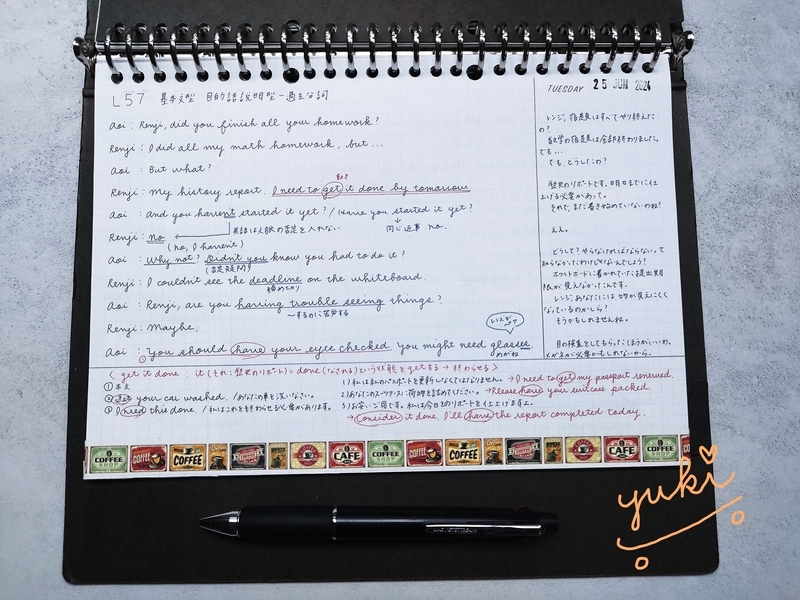 L57 基本文型 目的語説明型-過去分詞
TUESDAY 25 JUN 2024
Aoi : Renji, did you finish all your homework?
Renji : I did all my math homework, but...
Aoi : But what?
Renji : My history report. I need to get it done by tomorrow
Aoi : And you haven't started it yet? / Have you started it yet?
Renji : no
英語は文脈の否定を入れない
同じ返事 no.
(no, I haven't)
Aoi : Why not? Didn't you know you had to do it?
(否定疑問)
Renji : I couldn't see the deadline on the whiteboard.
締め切り
Aoi : Renji, are you having trouble seeing things?
〜するのに苦労する
Renji : Maybe.
レンズがペア
Aoi : You should have your eyes checked you might need glasses
めがね
レンジ、宿題はすべてやり終えた
の?
数学の宿題は全部終わりました。
でも...
でも、どうしたの?
歴史のリポートです。明日までに仕
上げる必要があって。
それで、まだ書き始めていないのね!
ええ。
どうして? やらなければならないって
知らなかったわけじゃないんでしょう!
ホワイトボードに書かれていた提出期
限が見えなかったんです。
レンジ、あなたには物が見えにくく
なっているのかしら?
そうかもしれませんね。
目の検査をしてもらったほうがいいわ。
メガネが必要かもしれないから。
< get it done : it (それ:歴史のリポート) = done (なされる) という状態を getする → 終わらせる >
① 本文
② Get your car washed. / あなたの車を洗いなさい。
③ I need this done. / 私はこれを終わらせる必要があります。
1) 私は私のパスポートを更新しなくてはなりません。→ I need to get my passport renewed.
2) あなたのスーツケースに荷物を詰めてください。→ Please have your suitcase packed.
3) お安いご用です。私は今日そのリポートを仕上げますよ。
→ Consider it done. I'll have the report completed today.
COFFEE SHOP
COFFEE
COFFEE
CAFE
COFFEE SHOP
COFFEE
COFFEE
CAFE
COFFEE SHOP
yuki